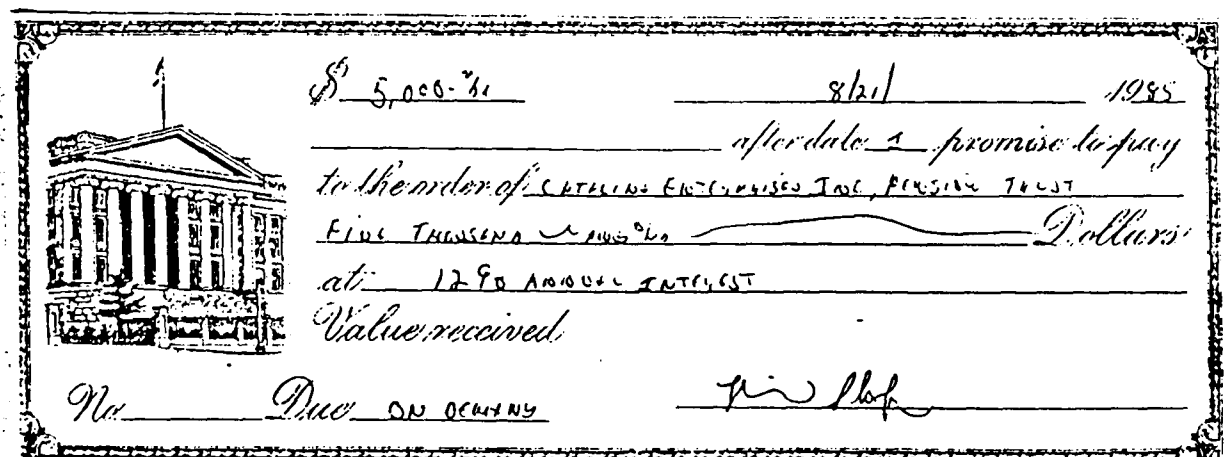 $ 5,000. 8/21/ 1985
after date I promise to pay
to the order of CATALINA ENTERPRISES INC, PENSION TRUST
FIVE THOUSAND Dollars
at 12% ANNUAL INTEREST
Value received
No Due ON DEMAND